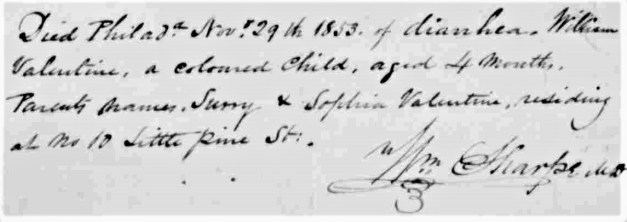 Died Philadᵃ Novʳ 29th 1853. of diarrhea. William
Valentine, a coloured Child, aged 4 Months.
Parents names. Surry & Sophia Valentine, residing
at No 10 Little pine St:.
Wm Sharpe M.D